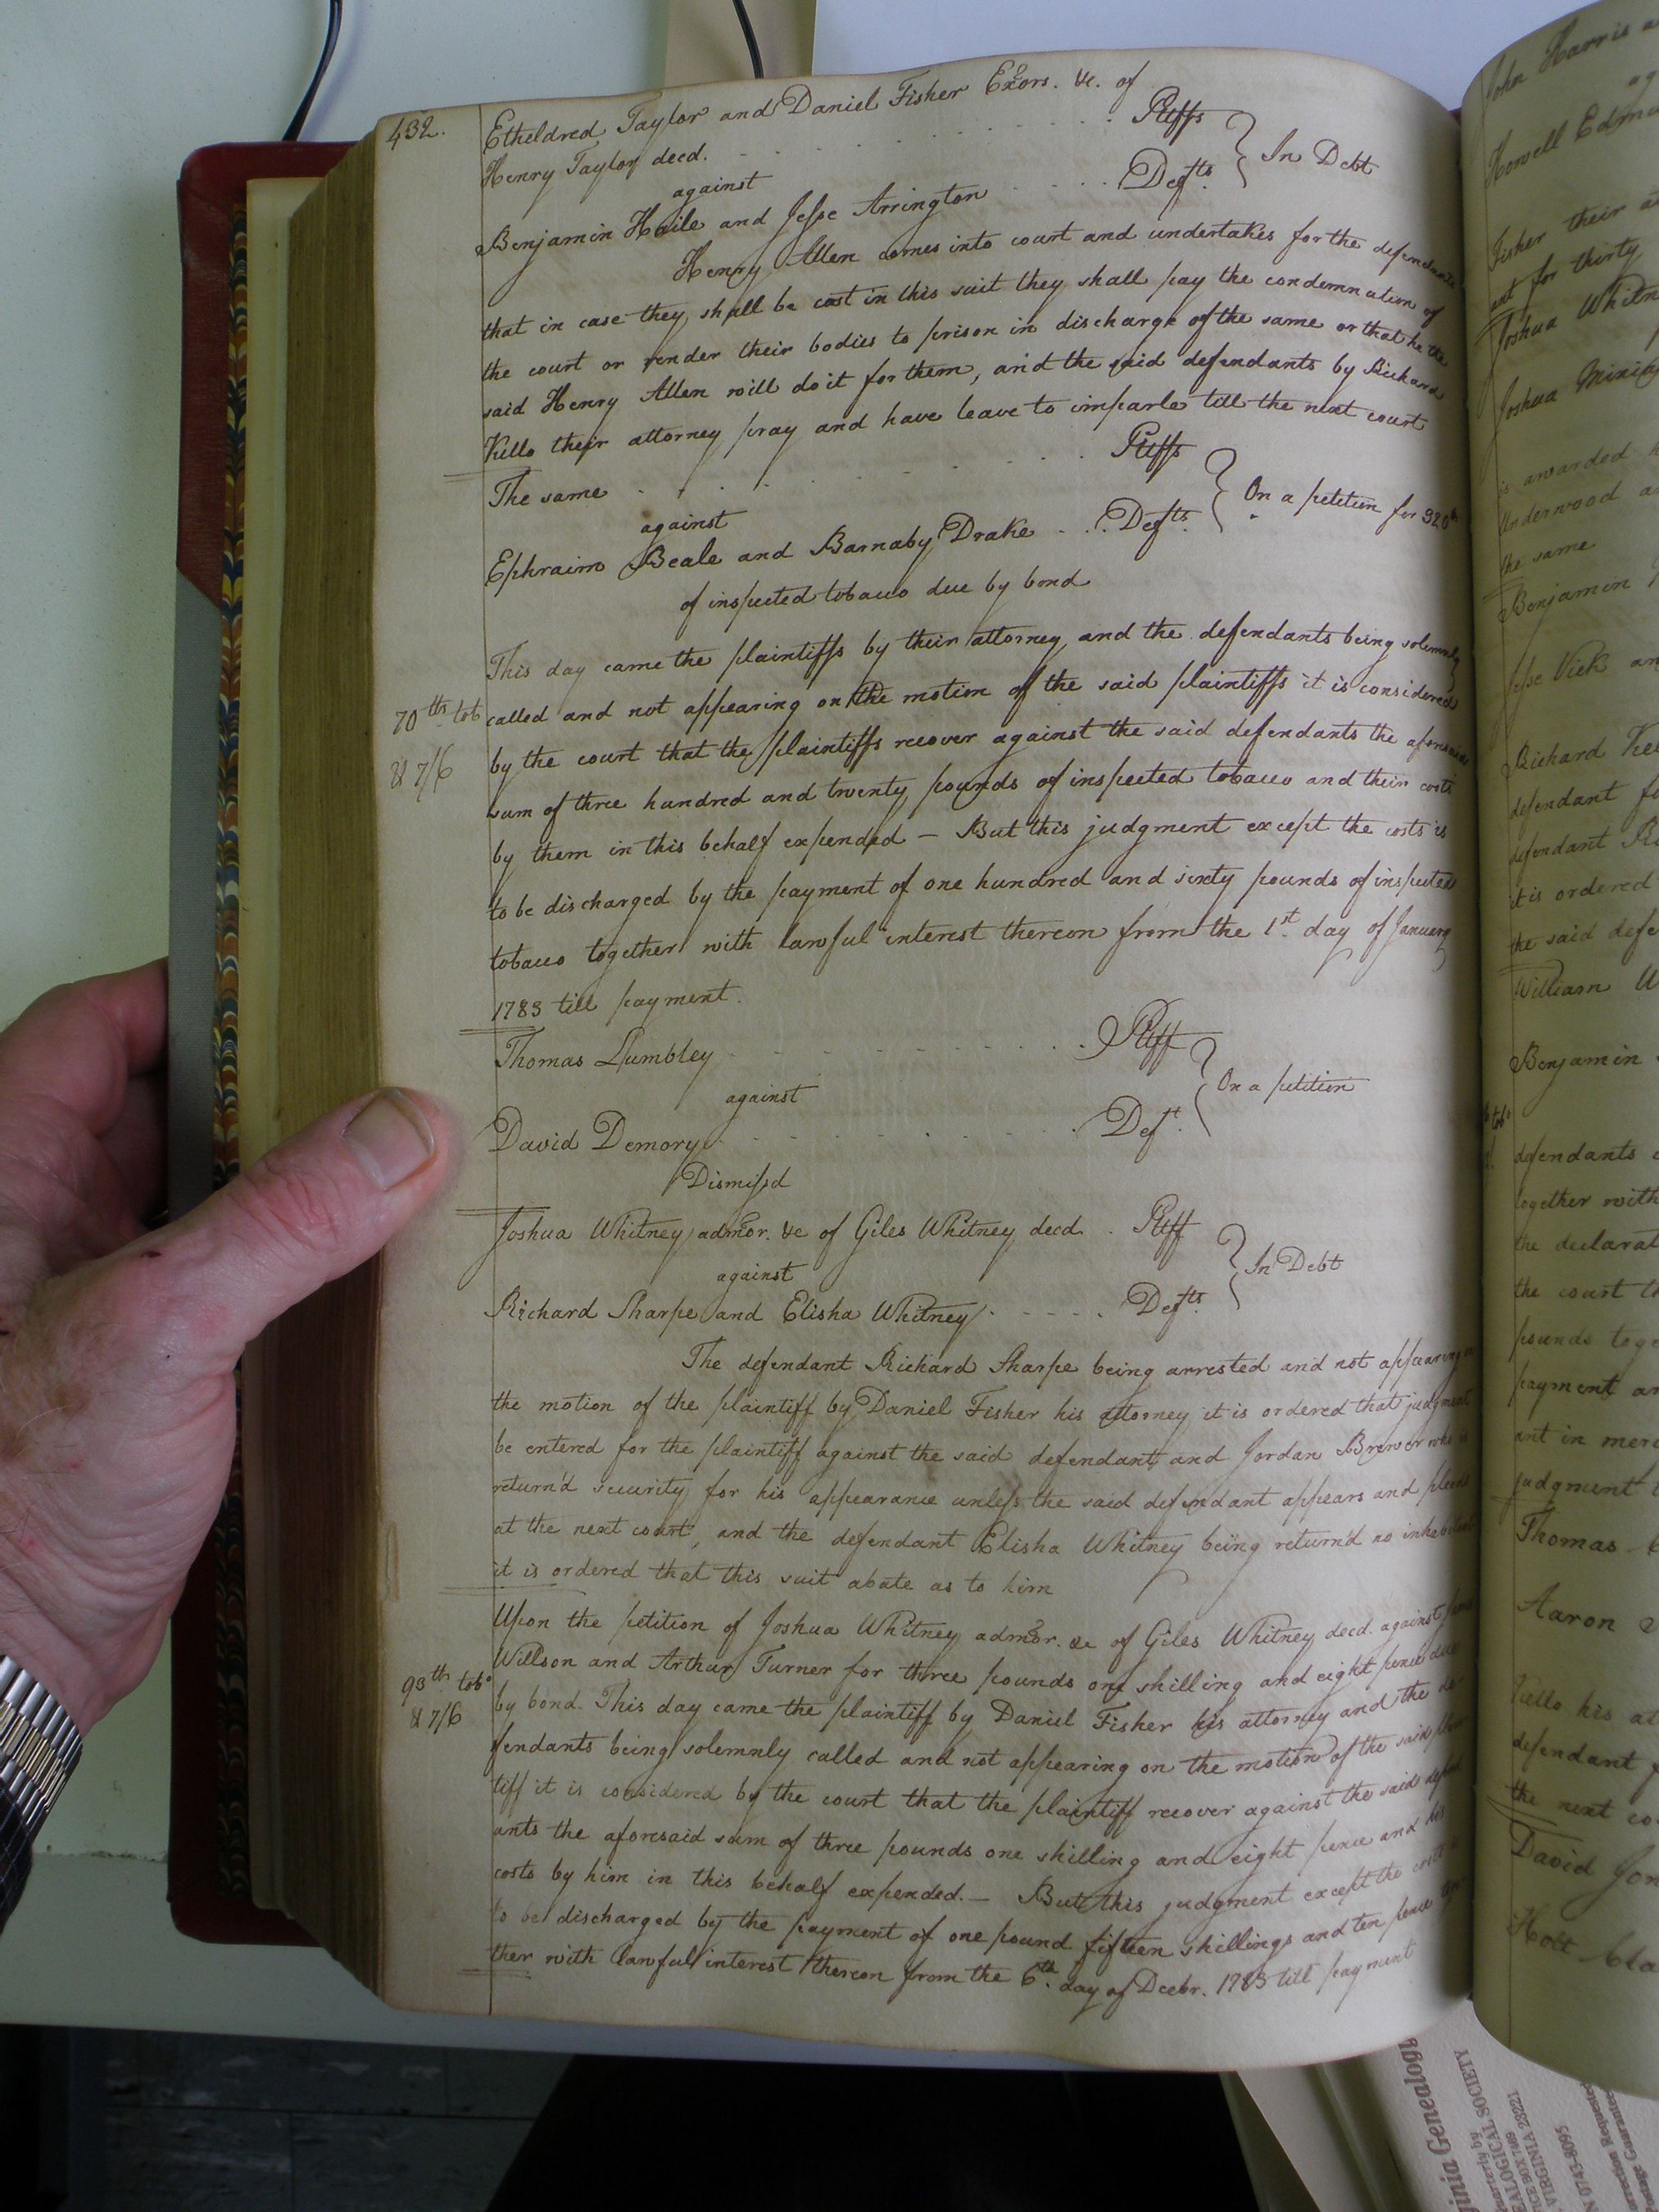 432.
Etheldred Taylor and Daniel Fisher Exors. &c. of
Henry Taylor decd. Pltffs
against
In Debt
Benjamin Haile and Jesse Arrington Defts.
Henry Allen comes into court and undertakes for the defendants
that in case they shall be cast in this suit they shall pay the condemnation of
the court or render their bodies to prison in discharge of the same or that he the
said Henry Allen will do it for them, and the said defendants by Richard
Kello their attorney pray and have leave to imparle till the next court
The same Pltffs
against
On a petition for 320
Ephraim Beale and Barnaby Drake Defts.
of inspected tobacco due by bond
This day came the plaintiffs by their attorney and the defendants being solemnly
70 tbs tob called and not appearing on the motion of the said plaintiffs it is considered
by the court that the plaintiffs recover against the said defendants the aforesaid
& 7/6
sum of three hundred and twenty pounds of inspected tobacco and their costs
by them in this behalf expended — But this judgment except the costs is
to be discharged by the payment of one hundred and sixty pounds of inspected
tobacco together with lawful interest thereon from the 1st. day of January
1783 till payment.
Thomas Lumbley Pltff
against
On a petition
David Demory Deft.
Dismissd
Joshua Whitney admor. &c of Giles Whitney decd. Pltff
against
In Debt
Richard Sharpe and Elisha Whitney Defts.
The defendant Richard Sharpe being arrested and not appearing
the motion of the plaintiff by Daniel Fisher his attorney it is ordered that judgment
be entered for the plaintiff against the said defendant and Jordan Brewer who
return'd security for his appearance unless the said defendant appears and pleads
at the next court, and the defendant Elisha Whitney being return'd no inhabitant
it is ordered that this suit abate as to him
Upon the petition of Joshua Whitney admor. &c of Giles Whitney decd. against
Willson and Arthur Turner for three pounds one shilling and eight pence due
93 tbs tobo
by bond. This day came the plaintiff by Daniel Fisher his attorney and the de
& 7/6
fendants being solemnly called and not appearing on the motion of the said plain
tiff it is considered by the court that the plaintiff recover against the said defend
ants the aforesaid sum of three pounds one shilling and eight pence and his
costs by him in this behalf expended. — But this judgment except the costs
to be discharged by the payment of one pound fifteen shillings and ten pence
ther with lawful interest thereon from the 6th. day of Decbr. 1783 till payment
John Harris
Howell
Fisher their
for thirty
Joshua
Joshua
is awarded
Underwood
the same
Benjamin
Jesse Vick an
Richard
defendant
defendant
it is ordered
the said defe
William W
Benjamin
defendants
together with
the declarat
the court th
pounds toge
payment an
ant in merc
judgment
Thomas
Aaron
Kello his at
defendant
the next co
David Jon
Holt
inia Genealog
uarterly by
EALOGICAL SOCIETY
ICE BOX 7469
VIRGINIA 23221
0743-8095
rection Requested
ostage Guaranteed